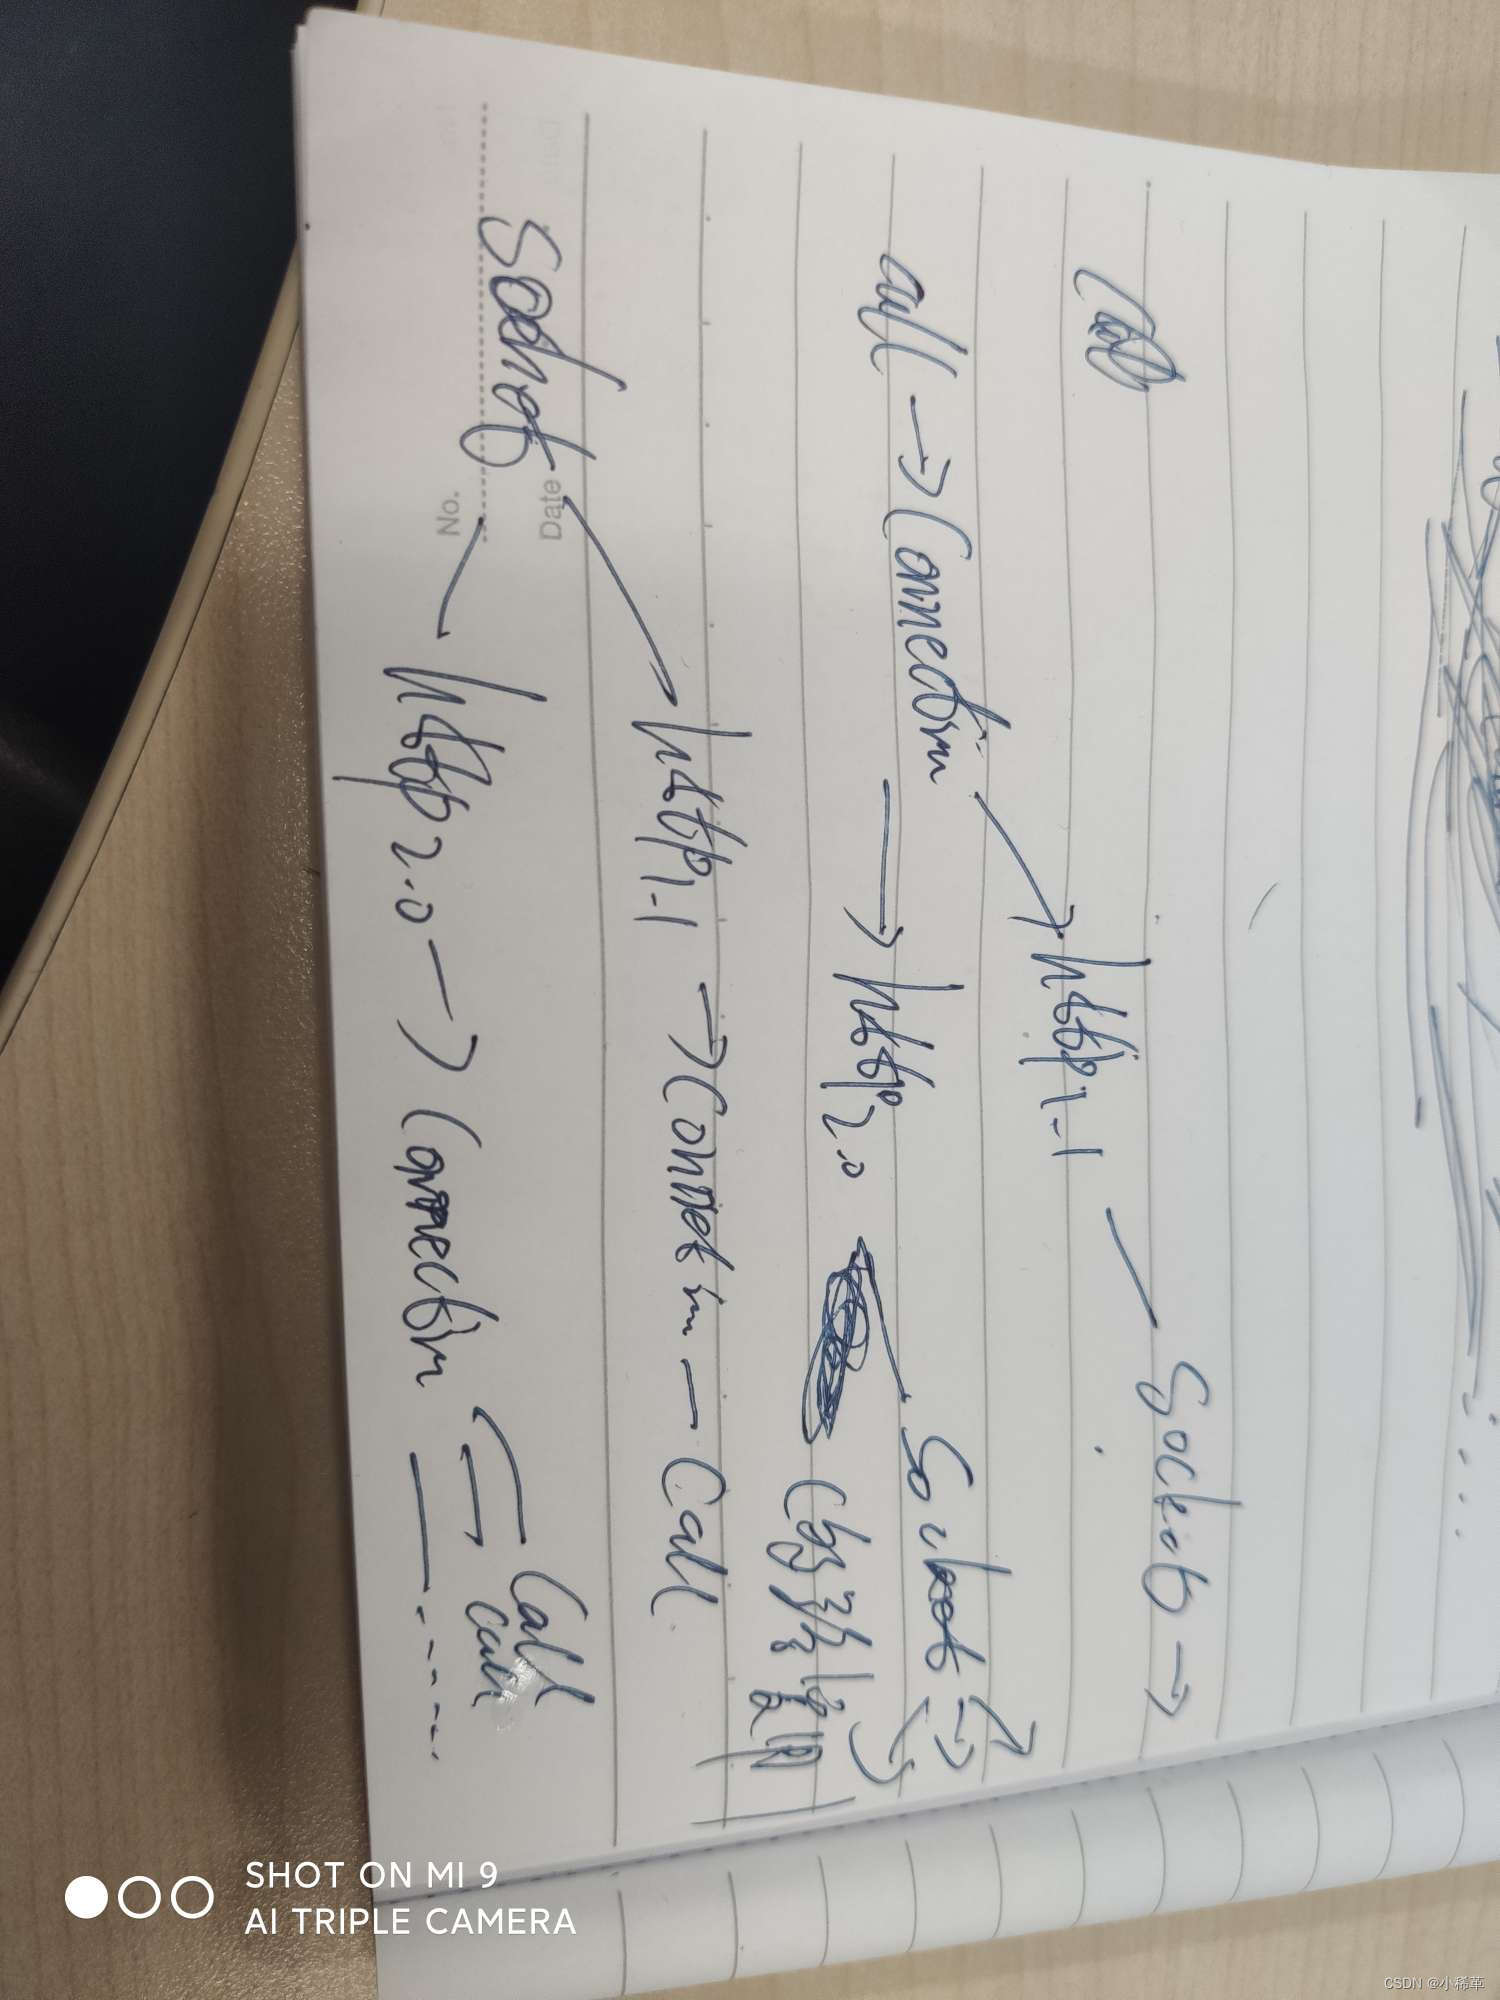 call → Connection → http1.1 — Socket →
→ http2.0 — Socket
Socket — http1.1 → Connection — Call
— http2.0 → Connection — Call
Call
No.
Date
SHOT ON MI 9
AI TRIPLE CAMERA
CSDN @小稀革